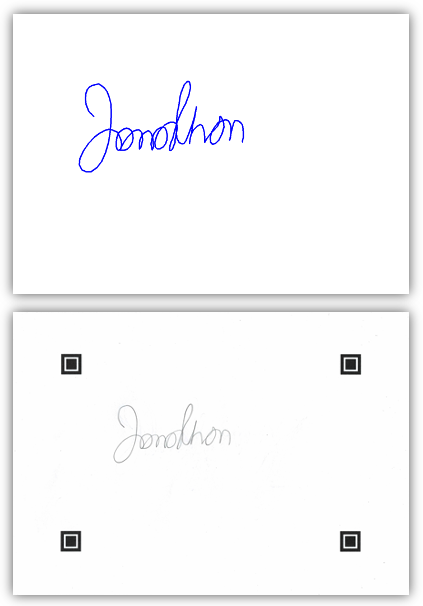 Jonathan
Jonathan